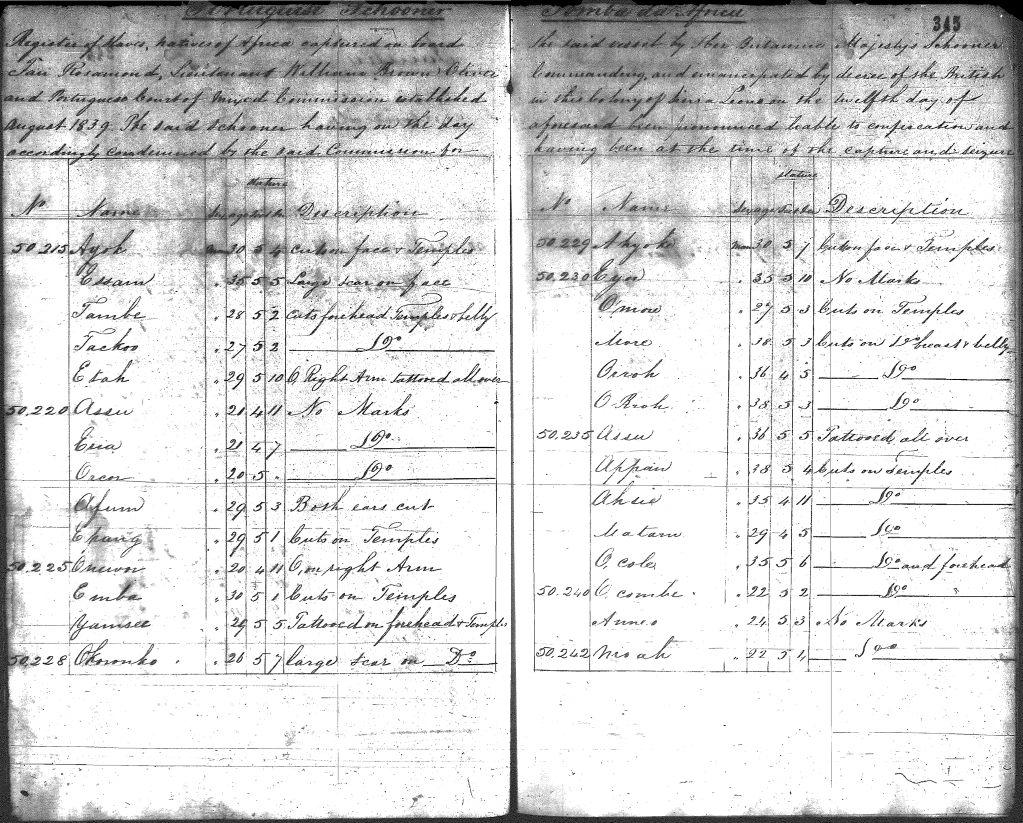 Portuguese Schooner
Register of Slaves, natives of Africa captured on board
Fair Rosamond, Lieutenant William Brown Oliver
and Portuguese Court of Mixed Commission established
August 1839. The said Schooner having on the day
accordingly condemned by the said Commission for
Stature
No Name Description
50,215 Ayok Man 30 5 4 Cuts on face & Temples
Essam " 35 5 5 Large scar on face
Tambe " 28 5 2 Cuts forehead Temples & belly
Tackoo " 27 5 2 Do
Etah " 29 5 10 O Right Arm tattooed all over
50,220 Assu " 21 4 11 No Marks
" 21 4 7 Do
" 20 5 " Do
Afum " 29 5 3 Both ears cut
" 29 5 1 Cuts on Temples
50,225 " 20 4 11 O, on right Arm
Emba " 30 5 1 Cuts on Temples
Yamsee " 29 5 5 Tattooed on forehead & Temples
50,228 Okoronko " 26 5 7 large scar on Do
345
the said vessel by Her Britannic Majestys Schooner
Commanding, and emancipated by decree of the British
in this Colony of Sierra Leone on the twelfth day of
aforesaid been pronounced liable to confiscation and
having been at the time of the capture and seizure
Stature
No Name Sex age Description
50,229 Akyoke Man 30 5 7 Cuts on face & Temples
50,230 " 35 5 10 No Marks
O'more " 27 5 3 Cuts on Temples
More " 38 5 3 Cuts on Do breast & belly
Orroh " 36 4 5 Do
O Rroh " 38 5 3 Do
50,235 Assu " 36 5 5 Tattooed all over
Appan " 38 5 4 Cuts on Temples
Aksie " 35 4 11 Do
Matam " 29 4 5 Do
O, cole " 35 5 6 Do and forehead
50,240 O, combe " 22 5 2 Do "
Anneo " 24 5 3 No Marks
50,242 Moah " 22 5 1 Do